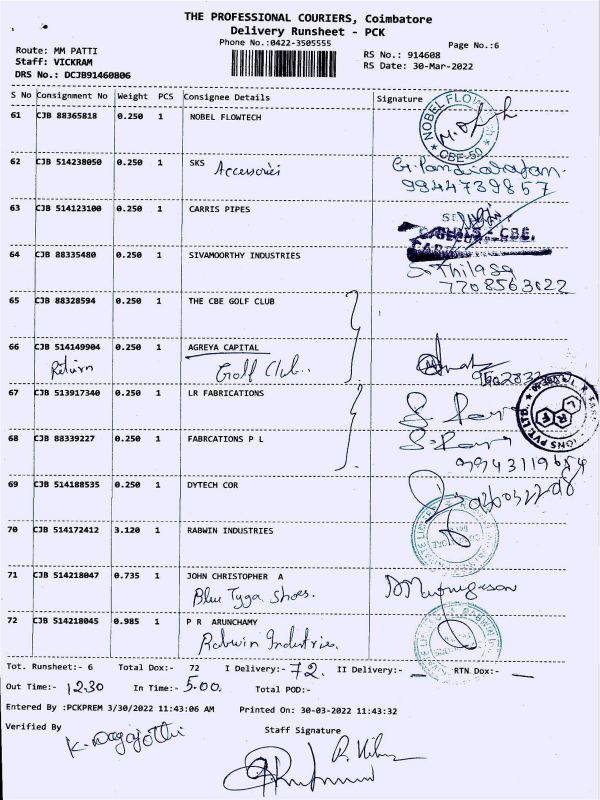 THE PROFESSIONAL COURIERS, Coimbatore
Delivery Runsheet - PCK
Phone No.:0422-3505555
Page No.:6
Route: MM PATTI
Staff: VICKRAM
DRS No.: DCJB91460806
RS No.: 914608
RS Date: 30-Mar-2022
S No Consignment No Weight PCS Consignee Details Signature
61 CJB 88365818 0.250 1 NOBEL FLOWTECH
NOBEL FLOW
CBE-50
62 CJB 514238050 0.250 1 SKS Accessories
9944739857
63 CJB 514123100 0.250 1 CARRIS PIPES
CBE.
64 CJB 88335480 0.250 1 SIVAMOORTHY INDUSTRIES
S. Thilaga
7708563022
65 CJB 88328594 0.250 1 THE CBE GOLF CLUB
66 CJB 514149904 0.250 1 AGREYA CAPITAL
Return Golf Club..
67 CJB 513917340 0.250 1 LR FABRICATIONS
68 CJB 88339227 0.250 1 FABRCATIONS P L
69 CJB 514188535 0.250 1 DYTECH COR
70 CJB 514172412 3.120 1 RABWIN INDUSTRIES
71 CJB 514218047 0.735 1 JOHN CHRISTOPHER A
Blue Tyga Shoes.
72 CJB 514218045 0.985 1 P R ARUNCHAMY
Rabwin Industries.
Tot. Runsheet:- 6 Total Dox:- 72 I Delivery:- 72. II Delivery:- — RTN Dox:- —
Out Time:- 12.30 In Time:- 5.00. Total POD:-
Entered By :PCKPREM 3/30/2022 11:43:06 AM Printed On: 30-03-2022 11:43:32
Verified By Staff Signature